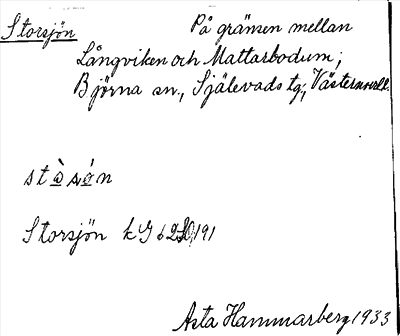 Storsjön På gränsen mellan
Långviken och Mattarbodum;
Björna sn., Själevads tg,
stàsǿn
Storsjön kG 191
Asta Hammarberg 1933